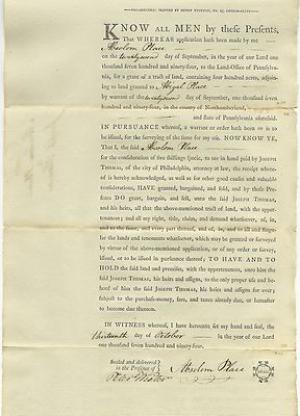 KNOW ALL MEN by these Presents,
That WHEREAS application hath been made by me
Absolom Place
on the twentysecond day of September, in the year of our Lord one
thousand seven hundred and ninety-four, to the Land-Office of Pennsylva-
nia, for a grant of a tract of land, containing four hundred acres, adjoin-
ing to land granted to Abigal Place
by warrant of the twentysecond day of September, one thousand seven
hundred and ninety-four, in the county of Northumberland,
and state of Pennsylvania aforesaid.
IN PURSUANCE whereof, a warrant or order hath been or is to
be issued, for the surveying of the same for my use. NOW KNOW YE,
That I, the said Absolom Place
for the consideration of five shillings specie, to me in hand paid by JOSEPH
THOMAS, of the city of Philadelphia, attorney at law, the receipt where-
of is hereby acknowledged, as well as for other good causes and valuable
considerations, HAVE granted, bargained, and sold, and by these Pre-
sents DO grant, bargain, and sell, unto the said JOSEPH THOMAS, and
his heirs, all that the above-mentioned tract of land, with the appur-
tenances; and all my right, title, claim, and demand whatsoever, of, in,
and to the same, and every part thereof, and of, in, and to all and singu-
lar the lands and tenements whatsoever, which may be granted or surveyed
by virtue of the above-mentioned application, or of any order or survey
issued, or to be issued in pursuance thereof; TO HAVE AND TO
HOLD the said land and premises, with the appurtenances, unto him the
said JOSEPH THOMAS, his heirs and assigns, to the only proper use and be-
hoof of him the said JOSEPH THOMAS, his heirs and assigns for ever;
subject to the purchase-money, fees, and taxes already due, or hereafter
to become due thereon.
IN WITNESS whereof, I have hereunto set my hand and seal, the
thirteenth day of October in the year of our Lord
one thousand seven hundred and ninety-four.
Sealed and delivered
in the Presence of
Absolom Place